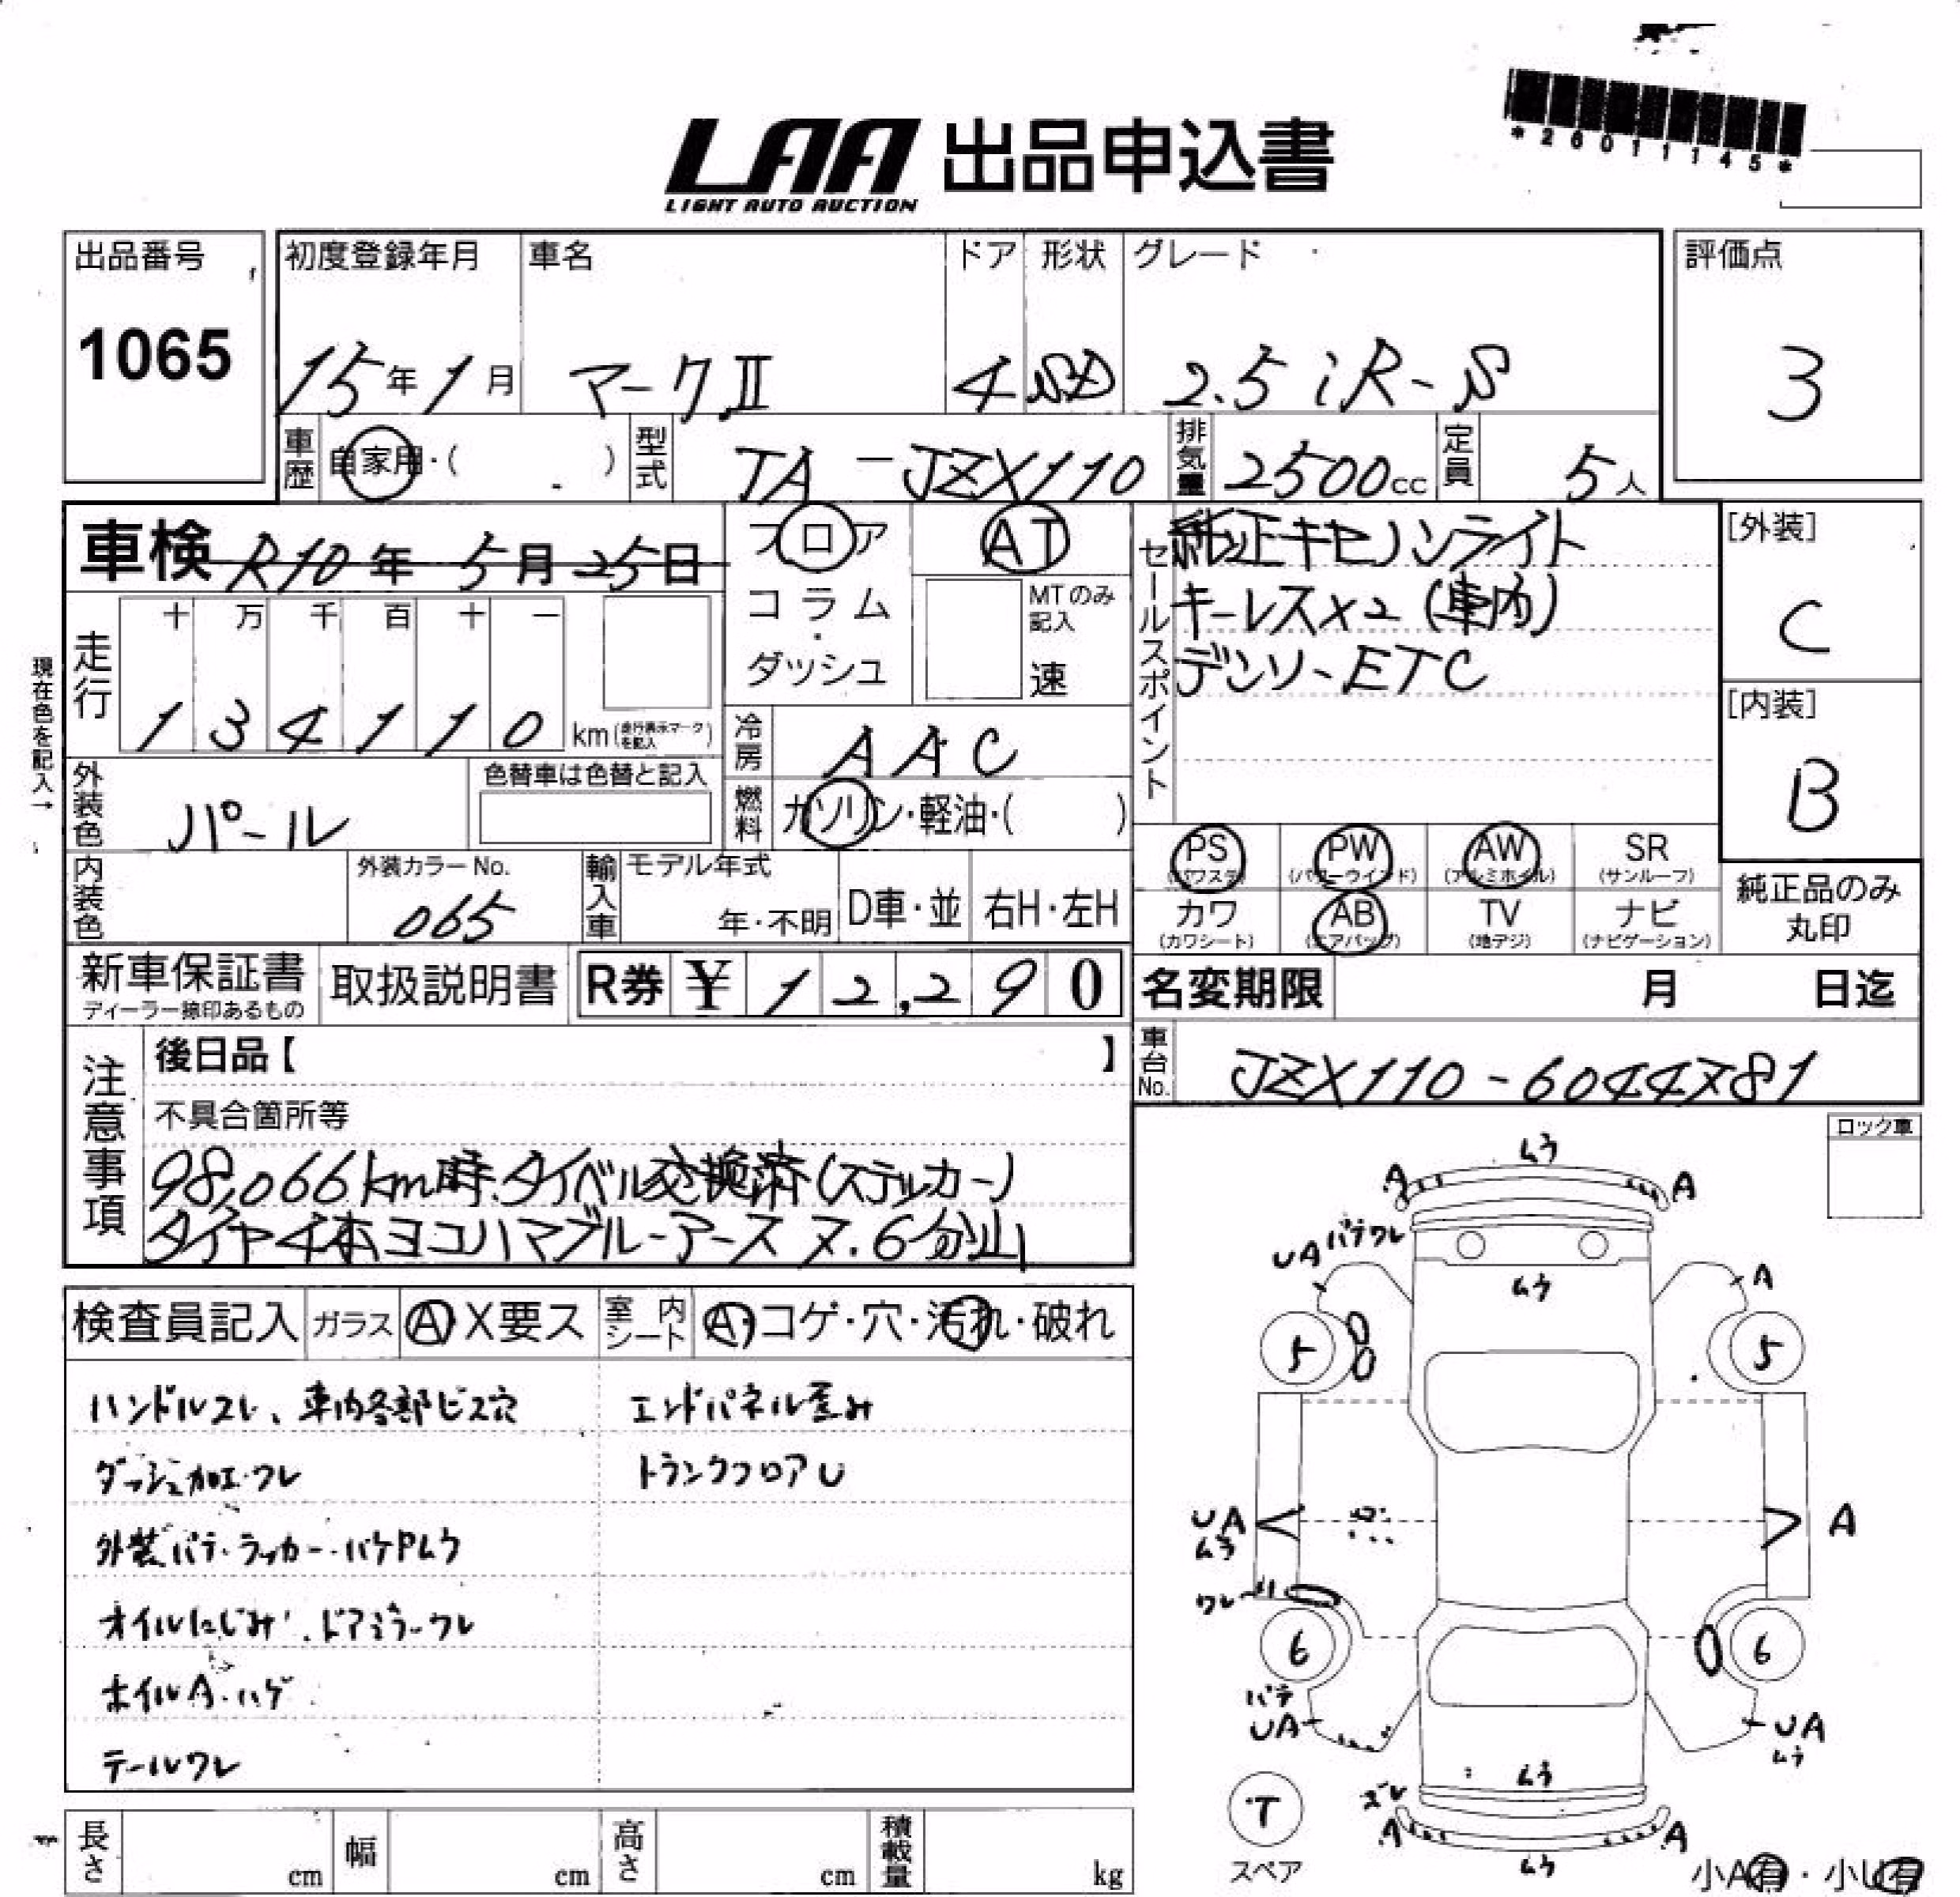 *26011145*
LAA 出品申込書
LIGHT AUTO AUCTION
出品番号 1065
初度登録年月 15年1月
車名 マークⅡ
ドア 4
形状 SD
グレード 2.5 iR-S
評価点 3
車歴 自家用・( )
型式 TA-JZX110
排気量 2500cc
定員 5人
車検 R10年 5月 25日
フロア
コラム
・
ダッシュ
AT
MTのみ記入
速
セールスポイント
純正キセノンライト
キーレス×2 (車内)
デンソーETC
[外装] C
[内装] B
現在色を記入→
走行 十 万 千 百 十 一
1 3 4 1 1 0 km(走行表示マークを記入)
冷房 AAC
燃料 ガソリン・軽油・( )
外装色 パール
色替車は色替と記入
内装色
外装カラーNo. 065
輸入車 モデル年式 年・不明
D車・並
右H・左H
PS (パワステ)
PW (パワーウインド)
AW (アルミホイル)
SR (サンルーフ)
カワ (カワシート)
AB (エアバッグ)
TV (地デジ)
ナビ (ナビゲーション)
純正品のみ丸印
新車保証書
ディーラー捺印あるもの
取扱説明書
R券 ¥ 12,290
名変期限 月 日迄
車台No. JZX110-6044781
注意事項
後日品【 】
不具合箇所等
98,066km時.タイベル交換済(ステッカー)
タイヤ4本ヨコハマブルーアース 7.6分山
ロック車
検査員記入 ガラス A X要ス 室内シート A・コゲ・穴・汚れ・破れ
ハンドルスレ、車内各部ビス穴
ダッシュ加工・ワレ
外装パテ・ラッカー・ハケPムラ
オイルにじみ、ドアミラーワレ
ホイルA・ハゲ
テールワレ
エンドパネル歪み
トランクフロアU
ムラ
A A
UA パテワレ
ムラ
A
5 5
UA
ムラ
A
ワレ
6 6
パテ
UA
UA
ムラ
ムラ
ズレ
T
スペア
A A
ムラ
小A有・小U有
長さ cm 幅 cm 高さ cm 積載量 kg